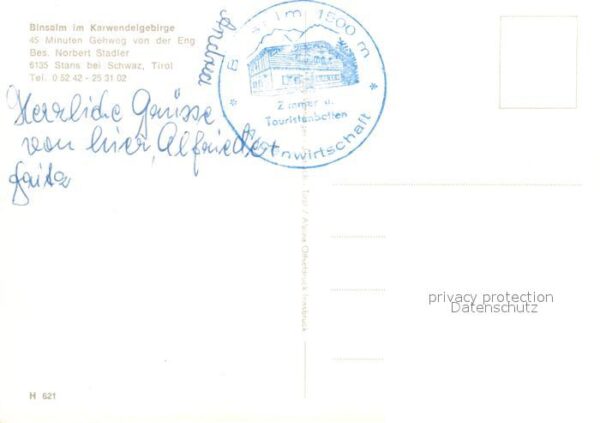 Binsalm im Karwendelgebirge
45 Minuten Gehweg von der Eng
Bes. Norbert Stadler
6135 Stans bei Schwaz, Tirol
Tel. 0 52 42 - 25 31 02
Andrea
1500 m
Zimmer u.
Touristenbetten
Herrliche Grüsse
von hier
Tirol / Alpina Offsetdruck Innsbruck
privacy protection
Datenschutz
H 621